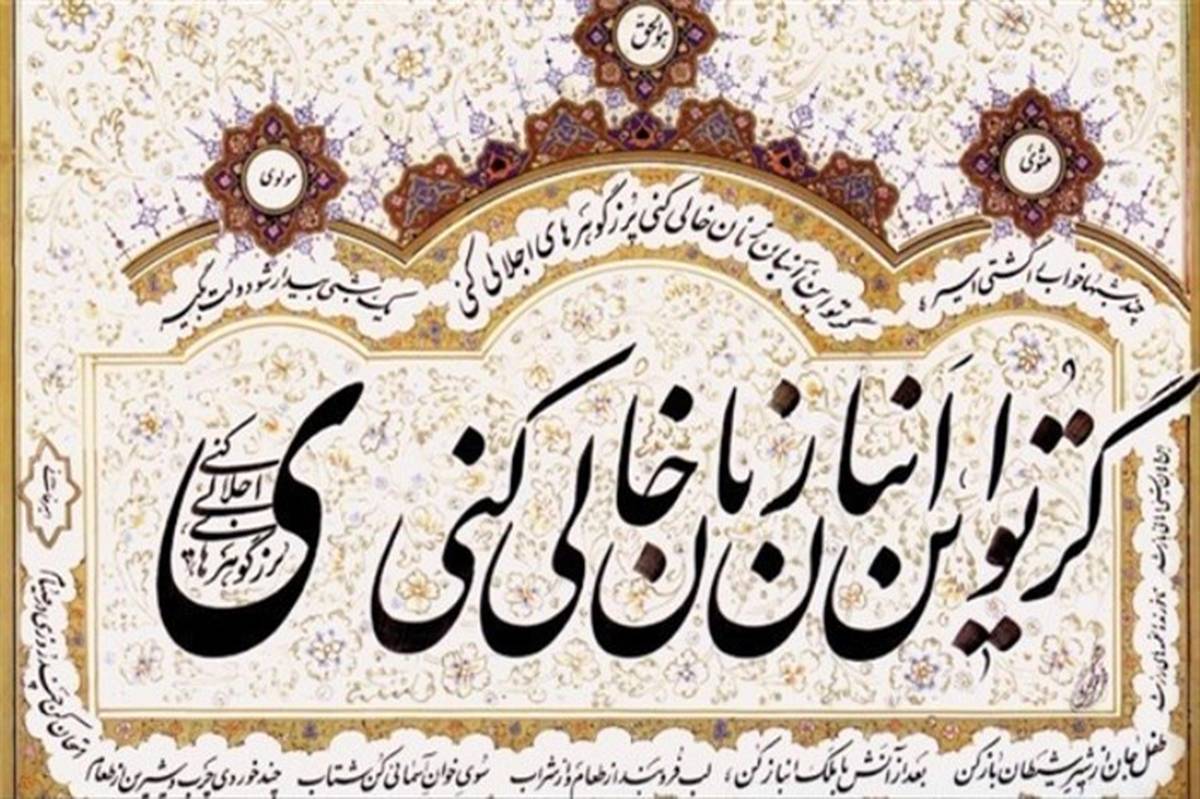 هوالحق
مثنوی
مولوی
چند شبها خواب را گشتی اسیر
گر تو این انبان ز نان خالی کنی پر ز گوهرهای اجلالی کنی
یک شبی بیدار شو دولت بگیر
گر تو این انبان ز نان خالی کنی
پر ز گوهرهای
اجلالی
کنی
طفل جان از شیر شیطان باز کن بعد از آنش با ملک انباز کن لب فروبند از طعام و از شراب سوی خوان آسمانی کن شتاب چند خوردی چرب و شیرین از طعام
امتحان کن چند روزی در صیام